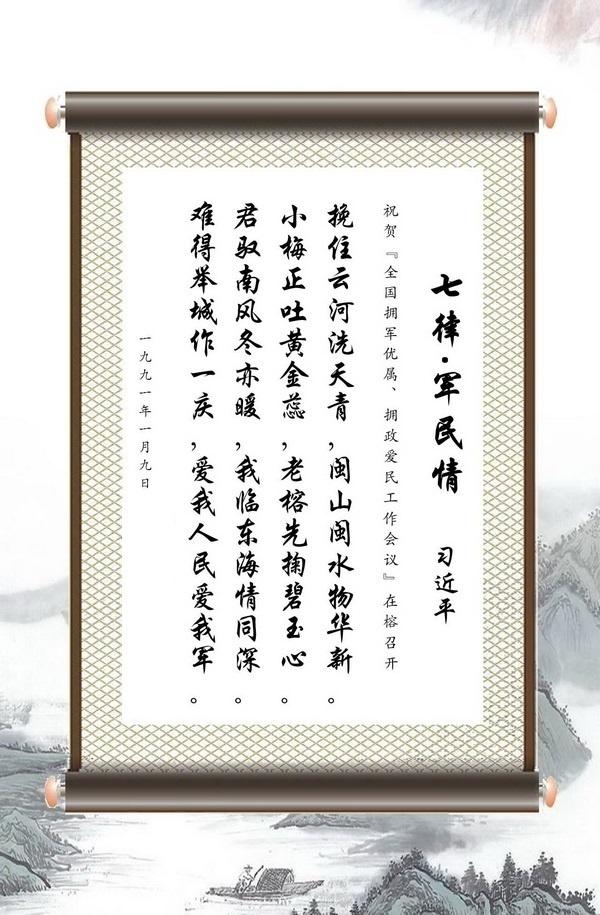 七律·军民情 习近平
祝贺『全国拥军优属、拥政爱民工作会议』在榕召开
挽住云河洗天青，闽山闽水物华新。
小梅正吐黄金蕊，老榕先掬碧玉心。
君驭南风冬亦暖，我临东海情同深。
难得举城作一庆，爱我人民爱我军。
一九九一年一月九日